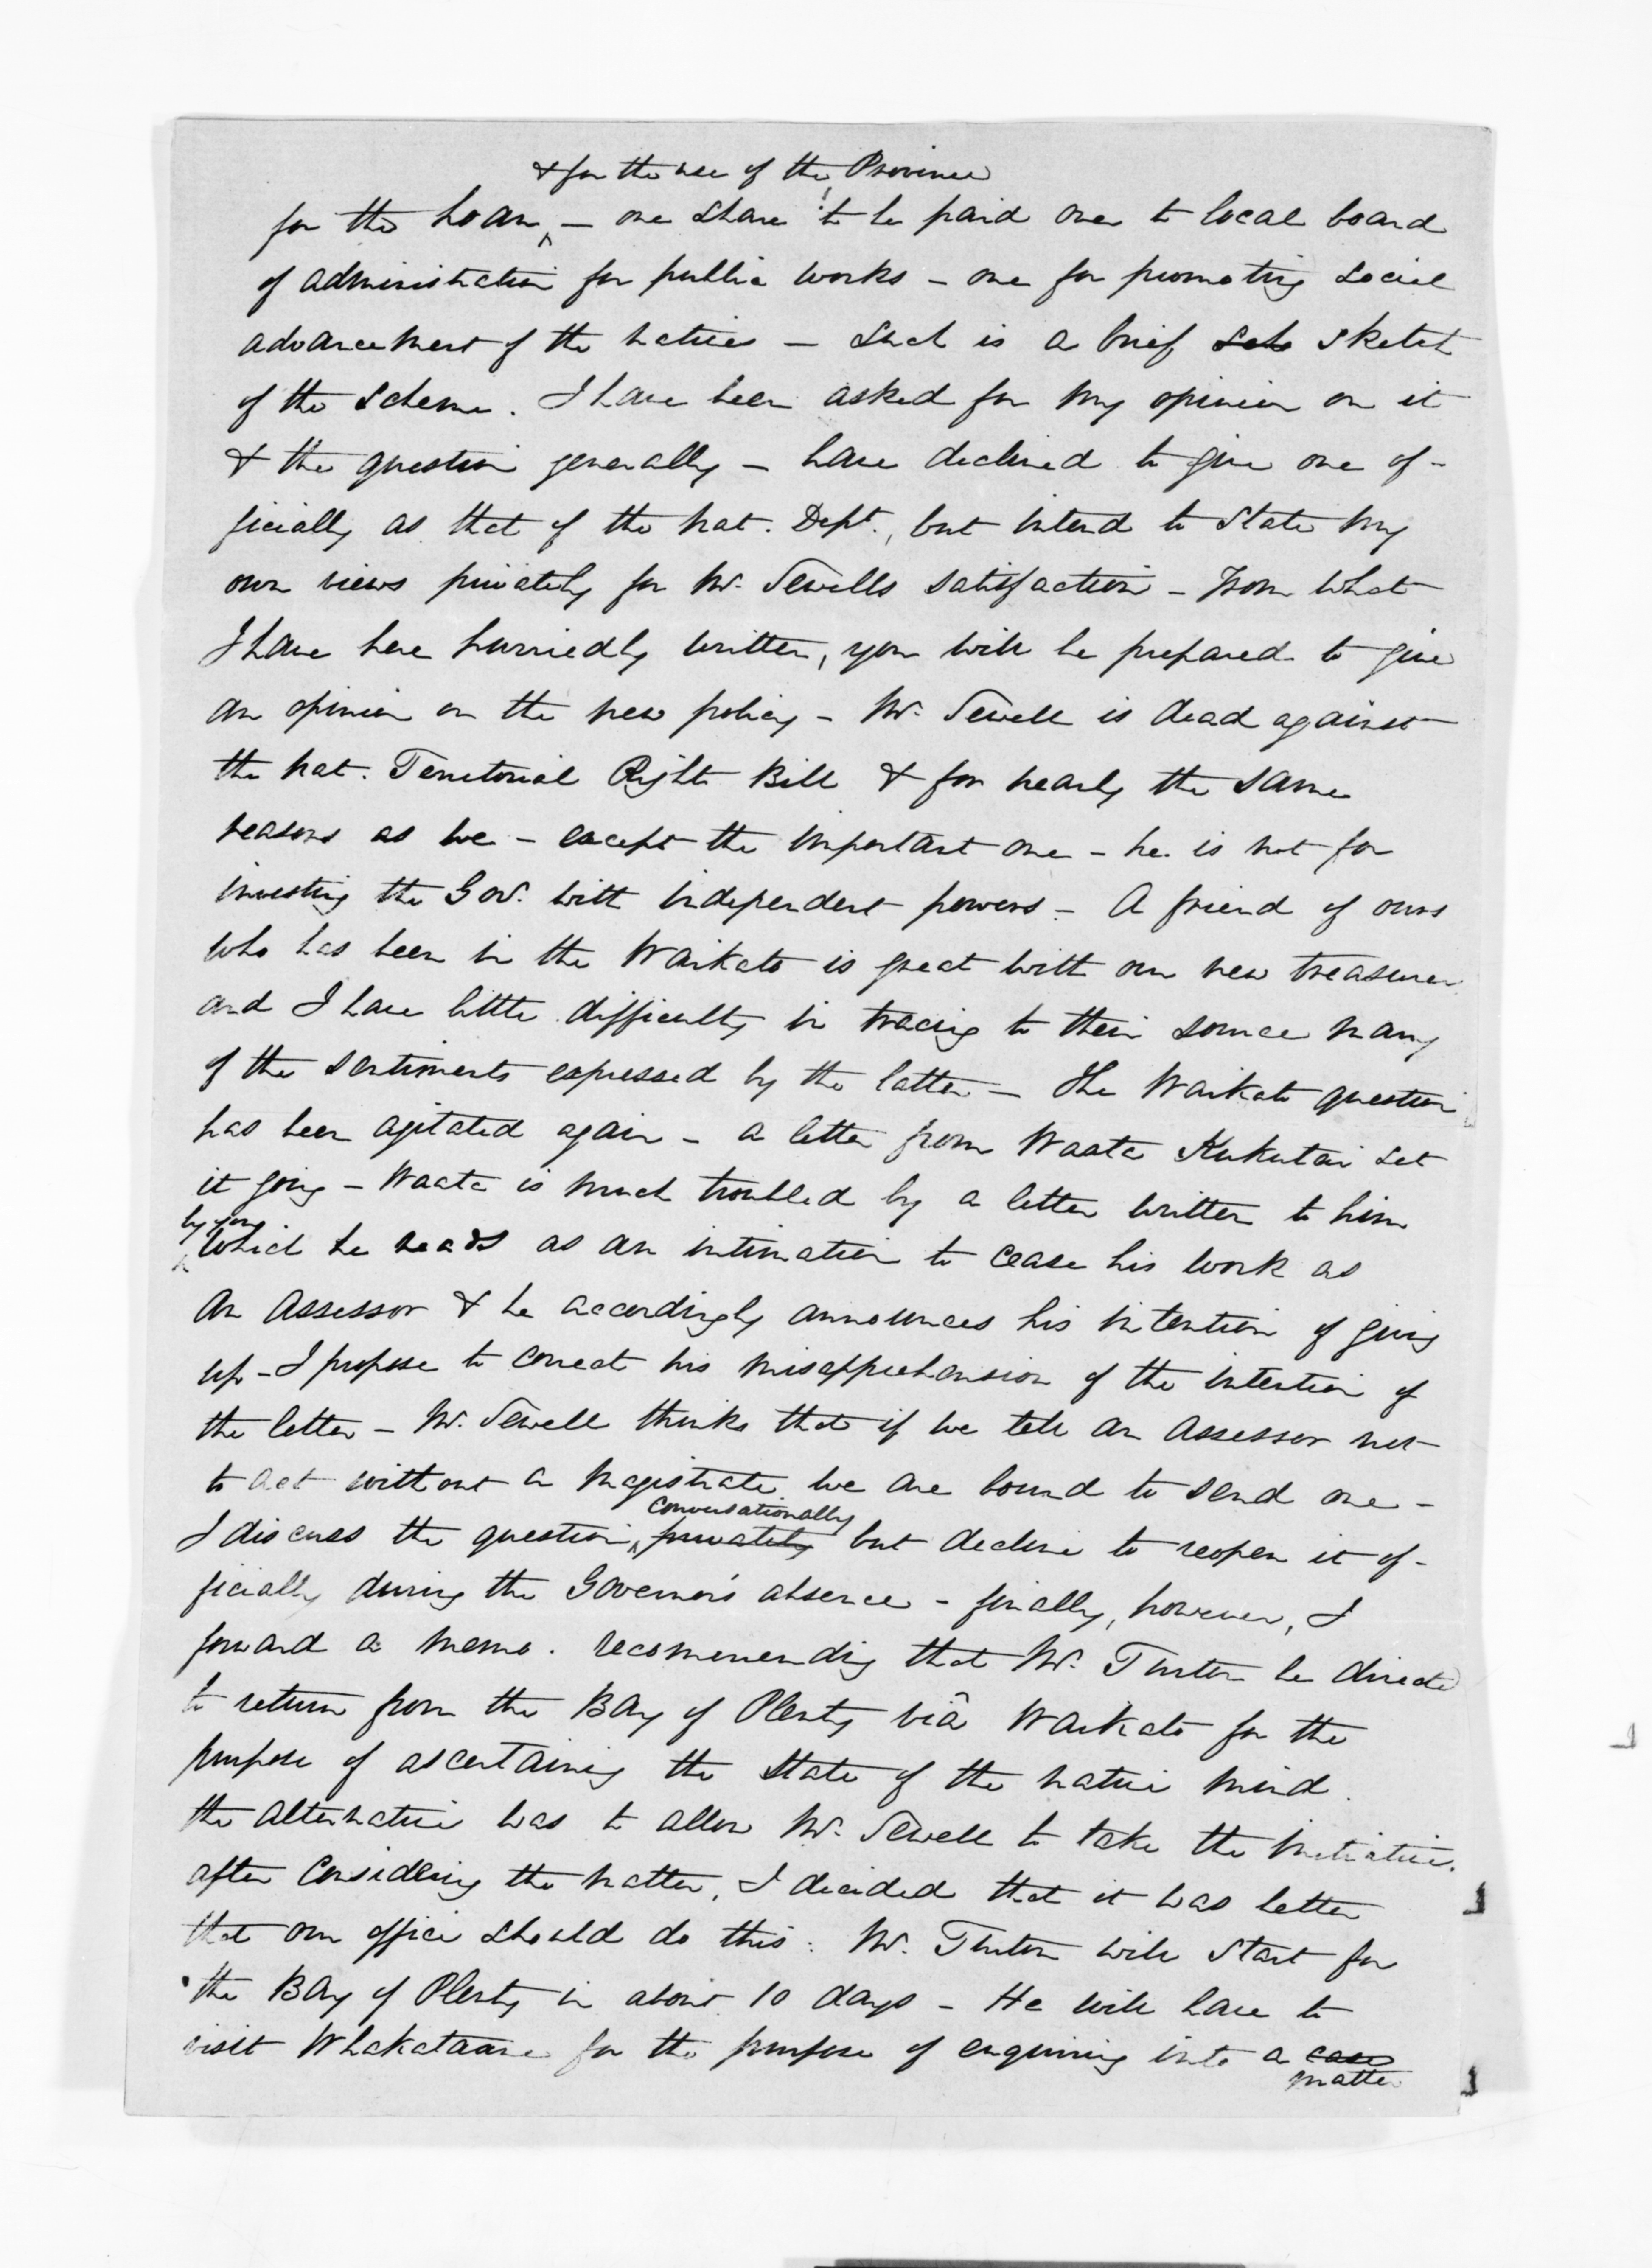 & for the use of the Province
for the Loan, — one share to be paid over to local board
of administration for public works — one for promoting social
advancement of the natives — Such is a brief sch sketch
of the scheme. I have been asked for my opinion on it
& the question generally — have declined to give one of-
ficially as that of the Nat. Dept., but intend to state my
own views privately for Mr. Sewells satisfaction — From what
I have here hurriedly written, you will be prepared to give
an opinion on the new policy — Mr. Sewell is dead against
the Nat. Territorial Right Bill & for nearly the same
reasons as we — except the important one — he is not for
investing the Gov. with independent powers — A friend of ours
who has been in the Waikato is great with our new treasurer
and I have little difficulty in tracing to their source many
of the sentiments expressed by the latter — The Waikato question
has been agitated again — a letter from Waata Kukutai set
it going — Waata is much troubled by a letter written to him
by you
which he reads as an intimation to cease his work as
an Assessor & he accordingly announces his intention of giving
up — I propose to correct his misapprehension of the intention of
the letter — Mr. Sewell thinks that if we tell an Assessor not
to act without a Magistrate we are bound to send one —
conversationally
I discuss the question, privately but decline to reopen it of-
ficially during the Governor's absence — finally, however, I
forward a memo. recommending that Mr. Turton be directed
to return from the Bay of Plenty viâ Waikato for the
purpose of ascertaining the state of the native mind.
the alternative was to allow Mr. Sewell to take the initiative.
after considering the matter, I decided that it was better
that our office should do this: Mr. Turton will start for
the Bay of Plenty in about 10 days — He will have to
visit Whakataane for the purpose of enquiring into a case
matter